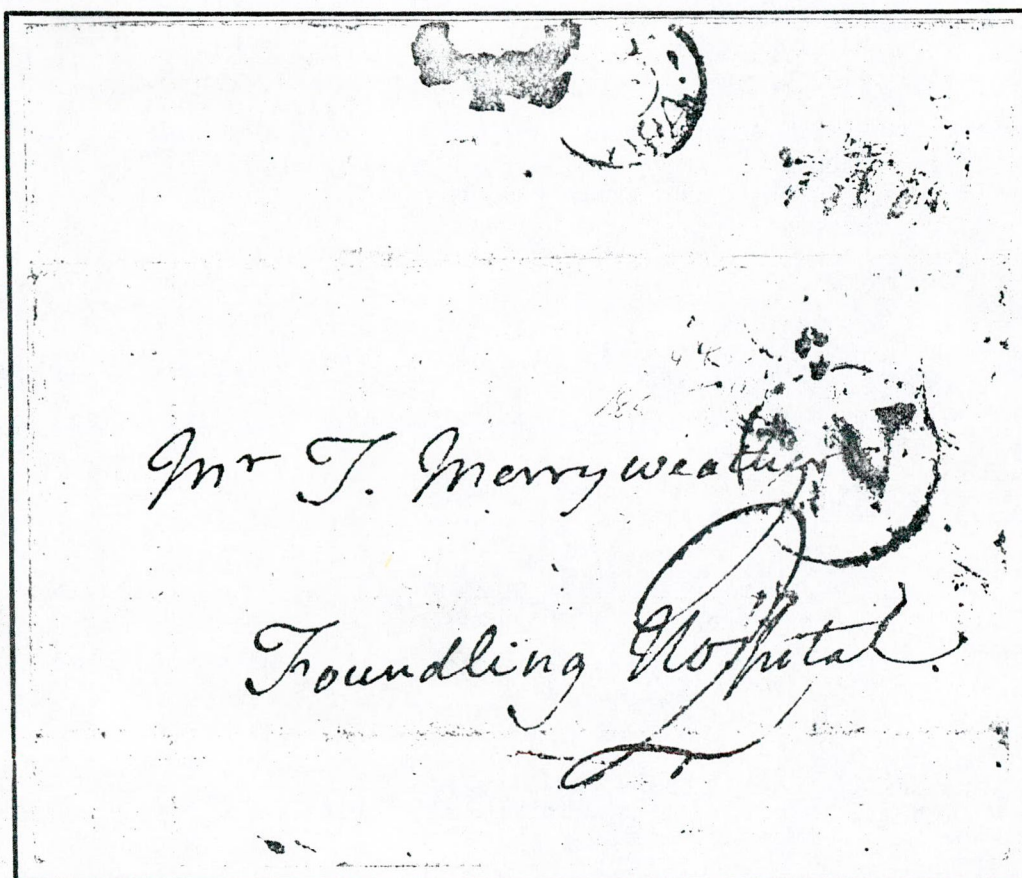 Mr T. Merryweather
Foundling Hospital.